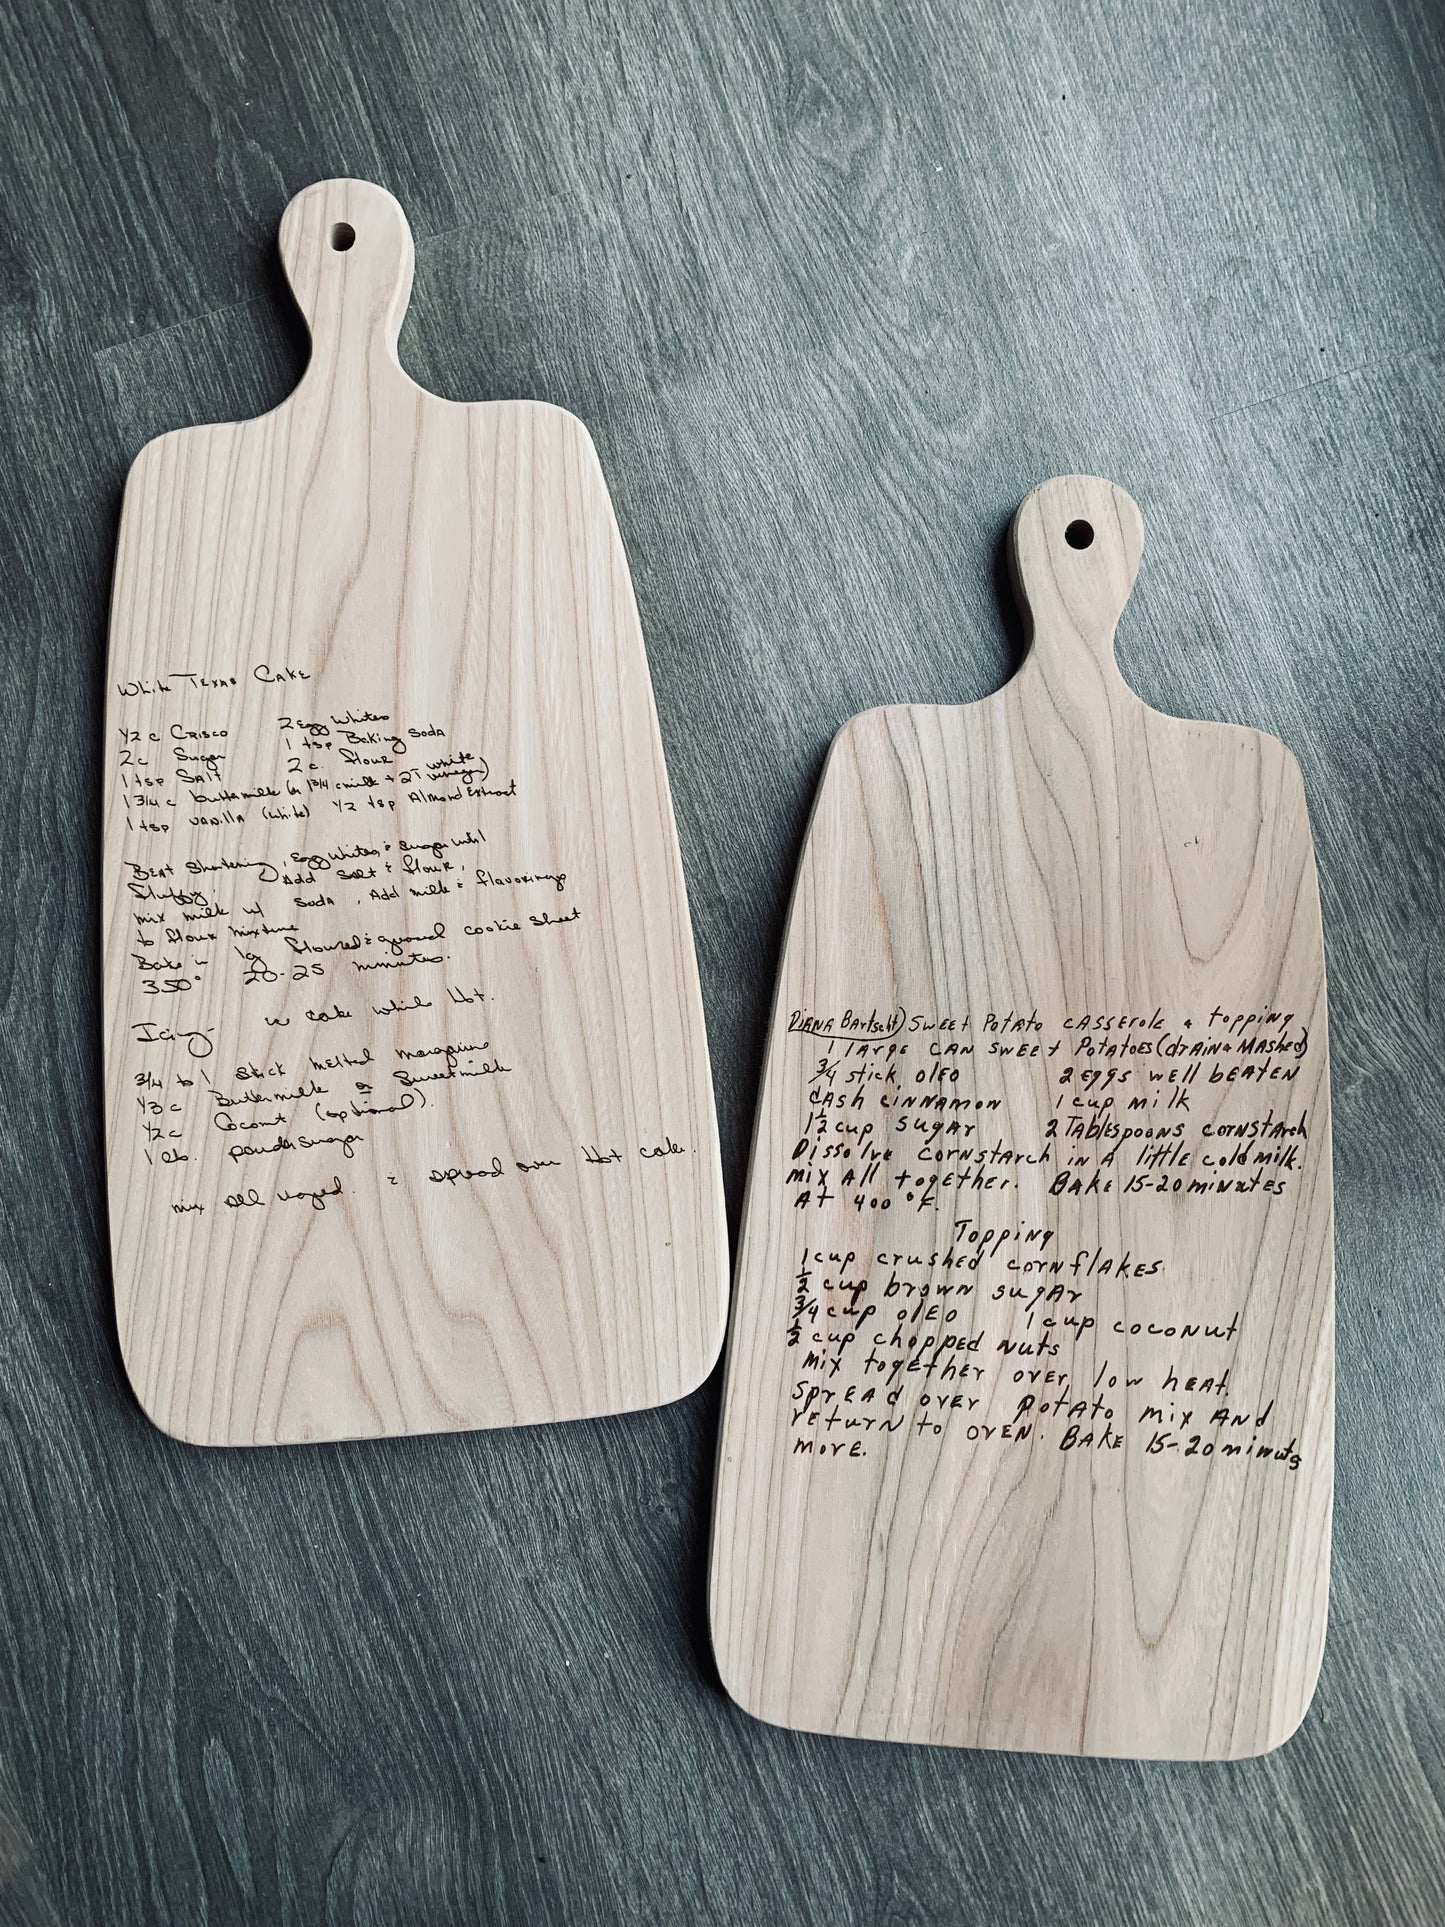 White Texas Cake
1/2 c Crisco 2 egg whites
2 c Sugar 1 tsp Baking Soda
1 tsp Salt 2 c. flour
1 3/4 c buttermilk (or 1 3/4 c milk + 2T white vinegar)
1 tsp vanilla (white) 1/2 tsp Almond Extract
Beat Shortening, egg whites & sugar until
fluffy. Add salt & flour,
mix milk w/ soda, Add milk & flavorings
to flour mixture
Bake in lg floured & greased cookie sheet
350° 20-25 minutes.
Icing - cake while Hot.
3/4 to 1 stick melted margarine
1/3 c Buttermilk or Sweetmilk
1/2 c Coconut (optional).
1 lb. powdersugar
mix all & spread over Hot cake.
Diana Bartscht) Sweet Potato Casserole & topping
1 large can sweet potatoes (drain & mashed)
3/4 stick oleo 2 eggs well beaten
dash cinnamon 1 cup milk
1 1/2 cup sugar 2 Tablespoons cornstarch
Dissolve cornstarch in a little cold milk.
mix all together. Bake 15-20 minutes
At 400° F.
Topping
1 cup crushed cornflakes
1/2 cup brown sugar
3/4 cup oleo 1 cup coconut
1/2 cup chopped nuts
mix together over low heat.
spread over potato mix and
return to oven. Bake 15-20 minuts
more.